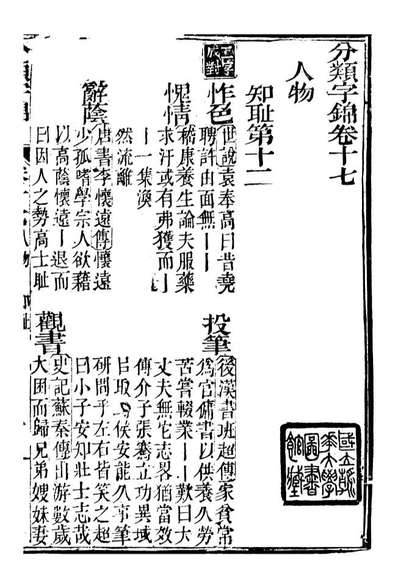 分類字錦卷十七
人物
知耻第十二
怍色
世說袁奉高曰昔堯
聘許由面無｜｜
愧情
嵇康養生論夫服藥
求汗或有弗獲而｜
｜一集渙
然流離
辭蔭
唐書李懷遠傳懷遠
少孤嗜學宗人欲藉
以高蔭懷遠｜退而
曰因人之勢高士耻
投筆
後漢書班超傳家貧常
為官傭書以供養久勞
苦嘗輟業｜｜歎曰大
丈夫無它志畧猶當效
傅介子張騫立功異域
以取封侯安能久事筆
研間乎左右皆笑之超
曰小子安知壯士志哉
觀書
史記蘇秦傳出游數歲
大困而歸兄弟嫂妹妻